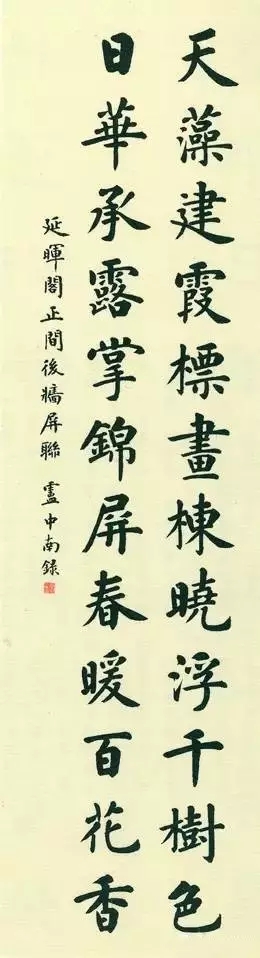 天藻建霞標畫棟曉浮千樹色
日華承露掌錦屏春暖百花香
延暉閣正間後牆屏聯 盧中南録